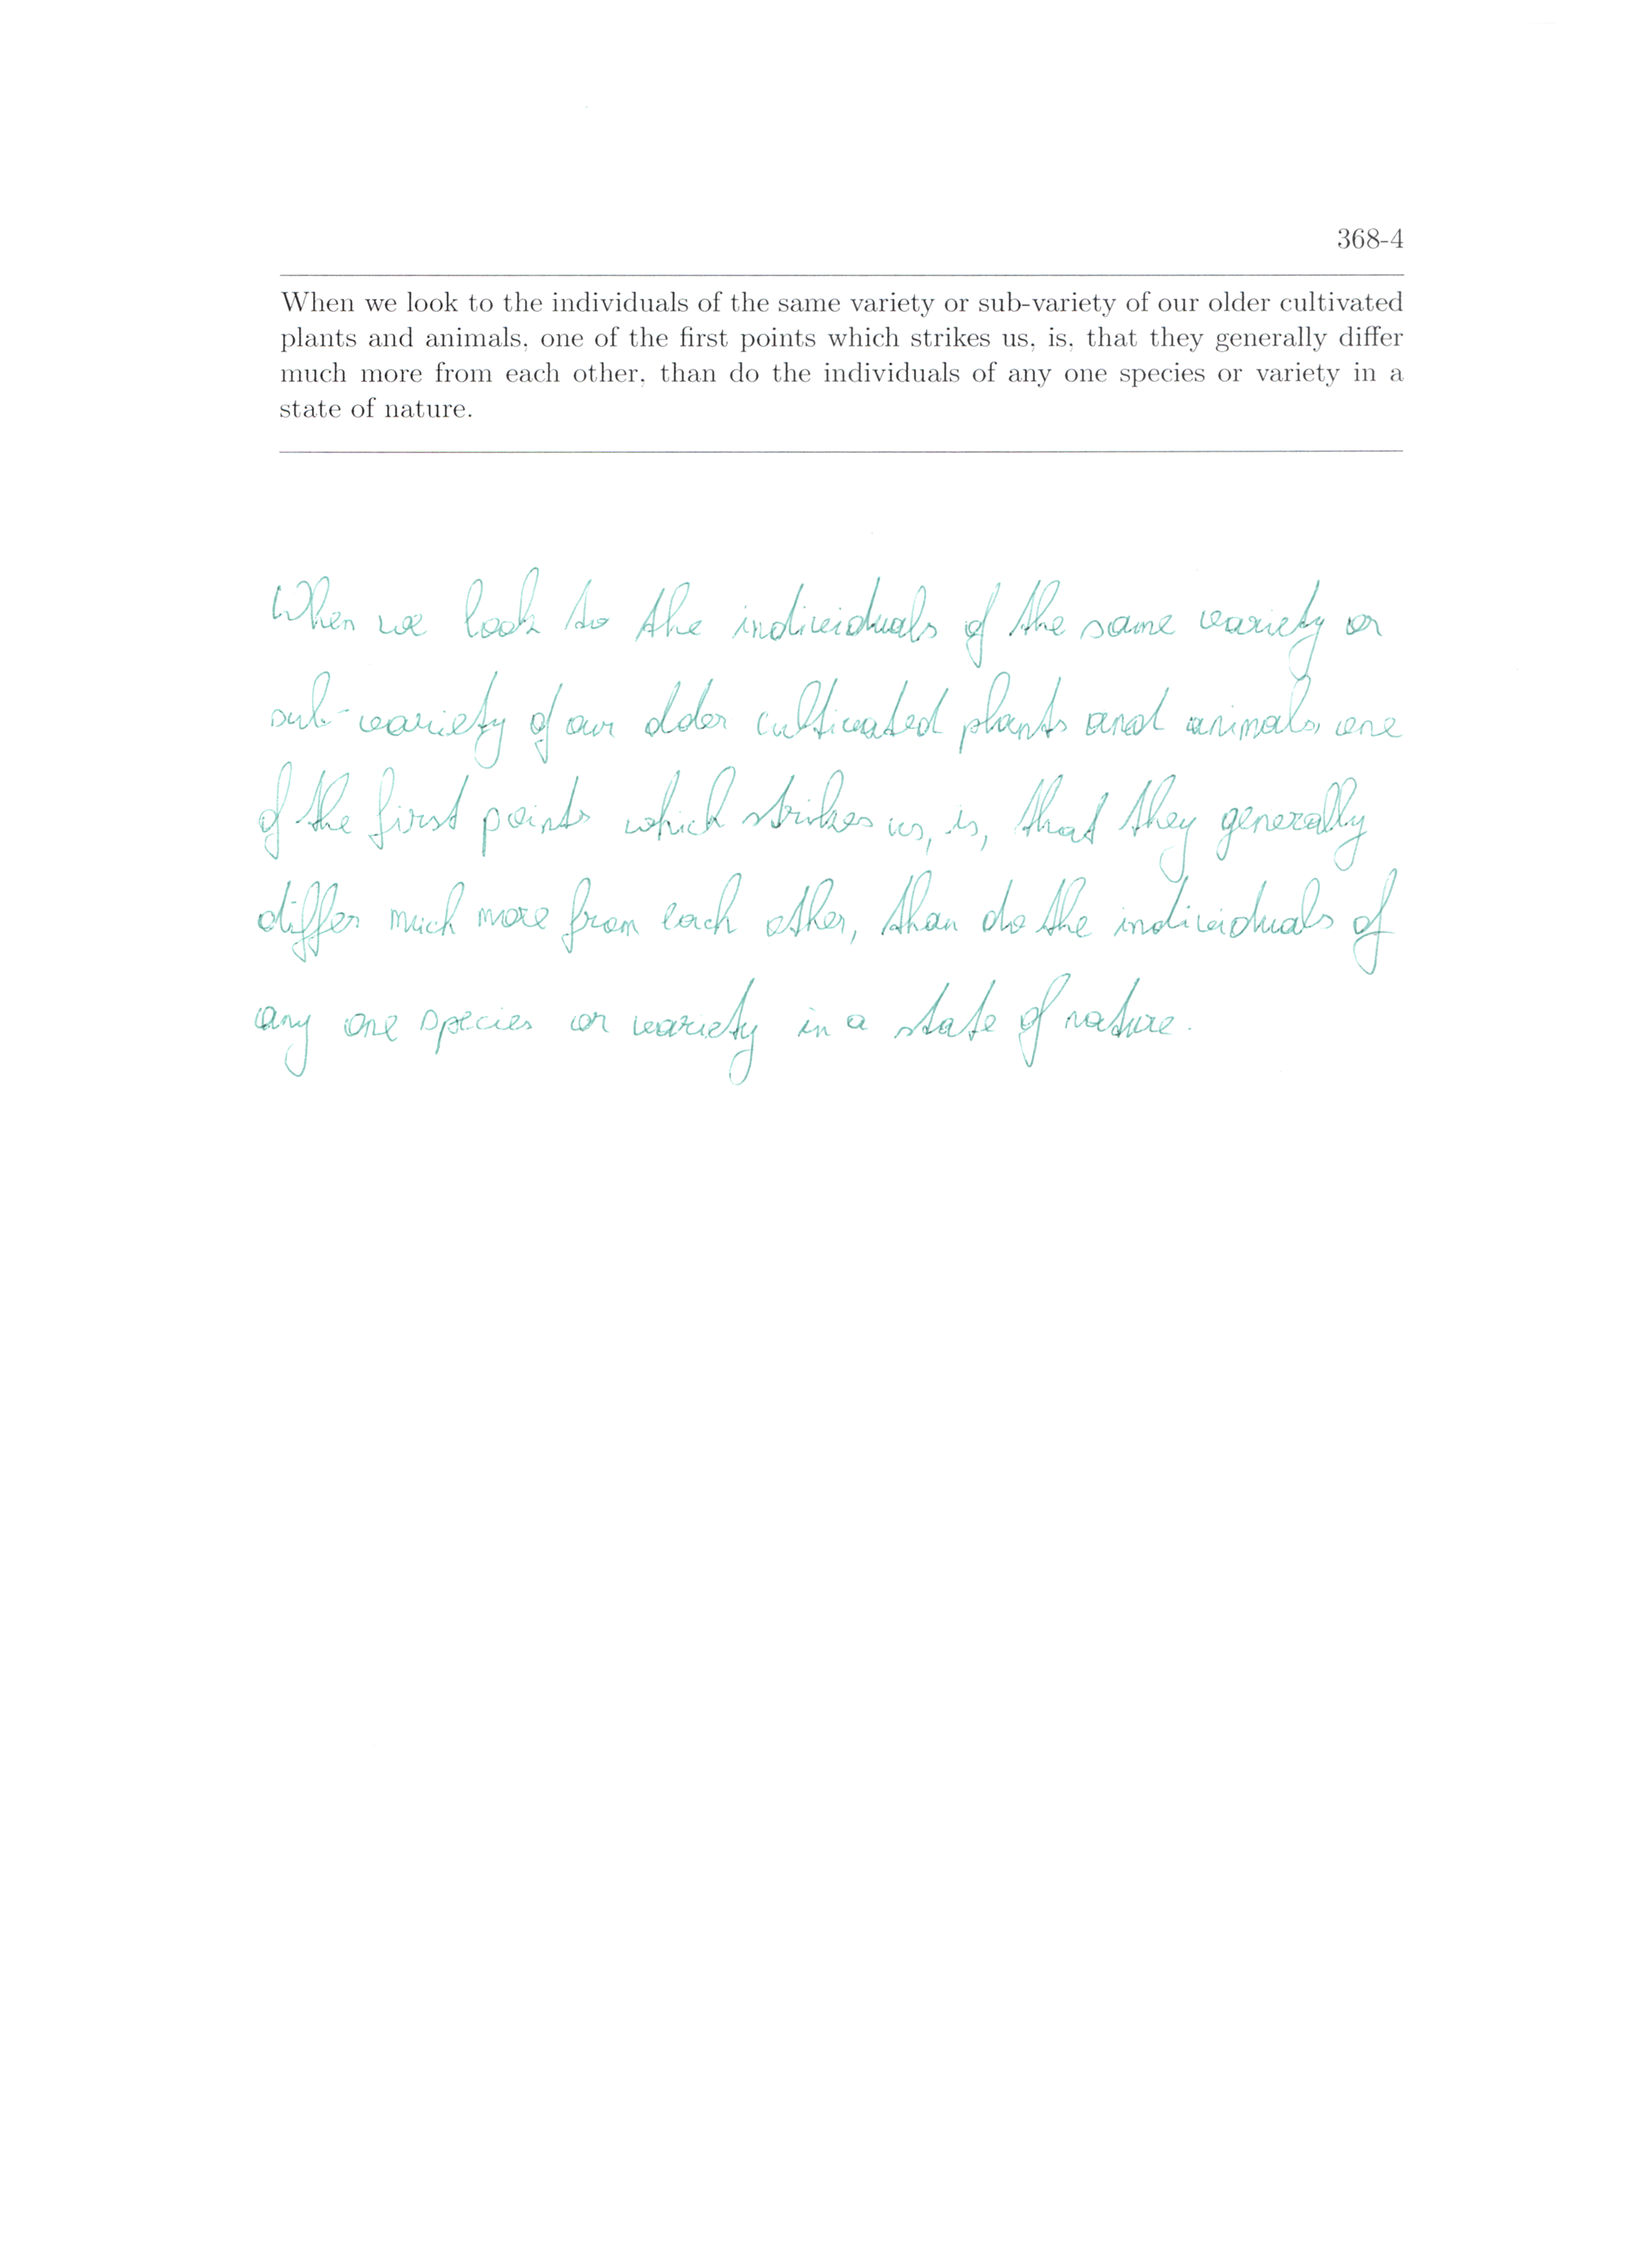 368-4
When we look to the individuals of the same variety or sub-variety of our older cultivated
plants and animals, one of the first points which strikes us, is, that they generally differ
much more from each other, than do the individuals of any one species or variety in a
state of nature.
When we look to the individuals of the same variety or
sub-variety of our older cultivated plants and animals, one
of the first points which strikes us, is, that they generally
differ much more from each other, than do the individuals of
any one species or variety in a state of nature.